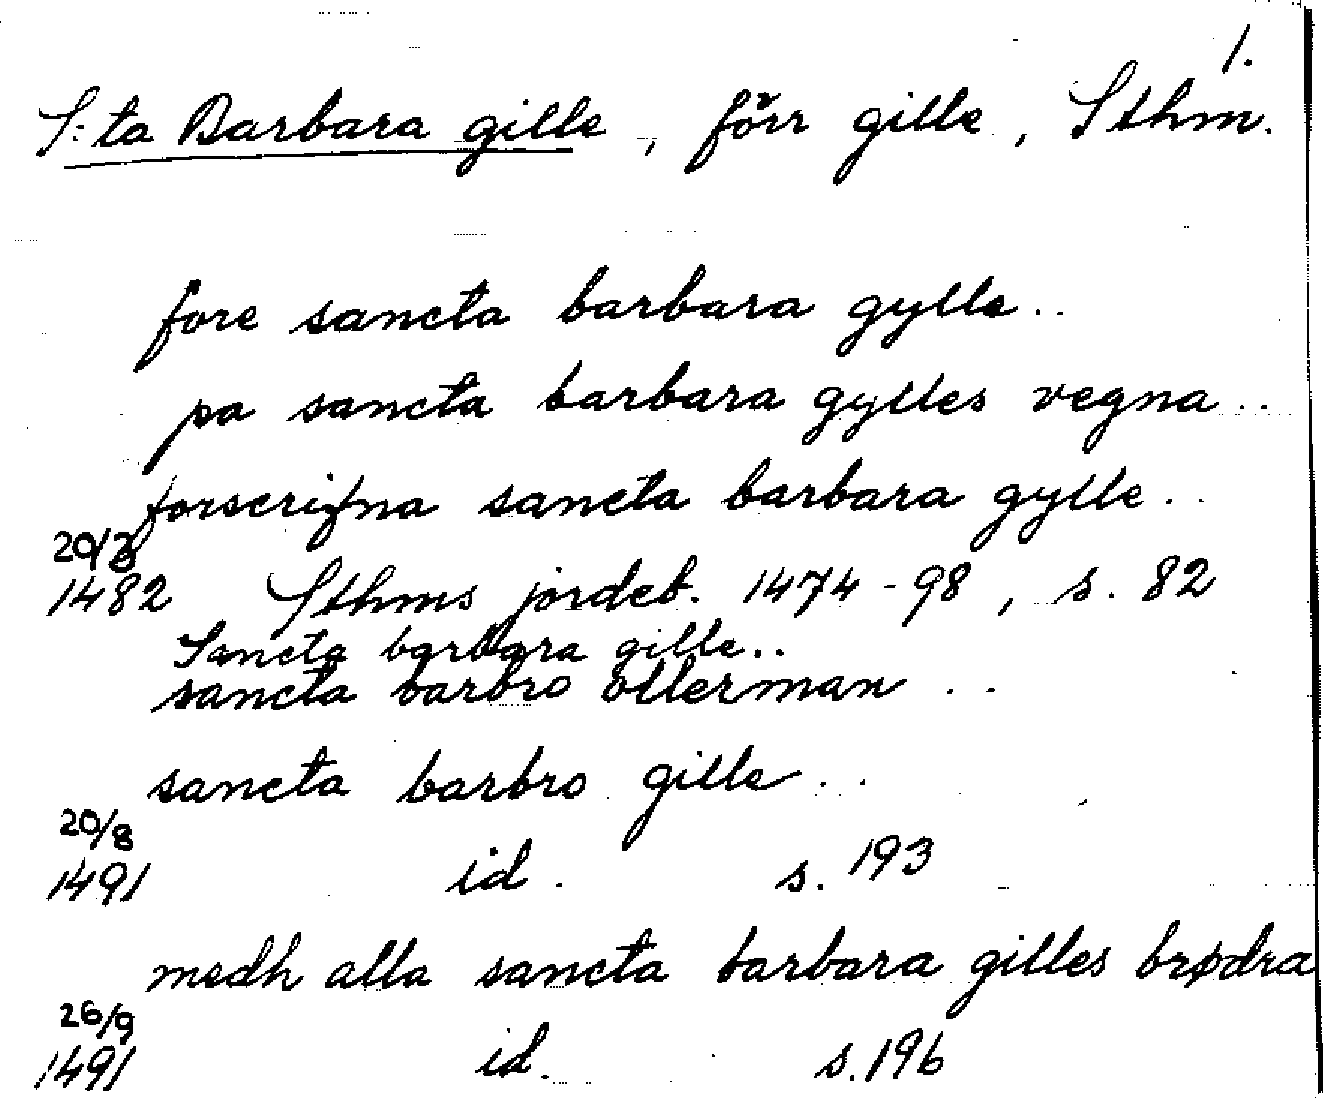 1.
S:ta Barbara gille, förr gille, Sthm.
fore sancta barbara gylle..
pa sancta barbara gylles vegna..
forscrifna sancta barbara gylle..
20/3
1482 Sthms jordeb. 1474-98, s. 82
Sancta barbara gille..
sancta barbro ollerman ..
sancta barbro gille..
20/8
1491 id. s. 193
medh alla sancta barbara gilles brødra
26/9
1491 id. s. 196